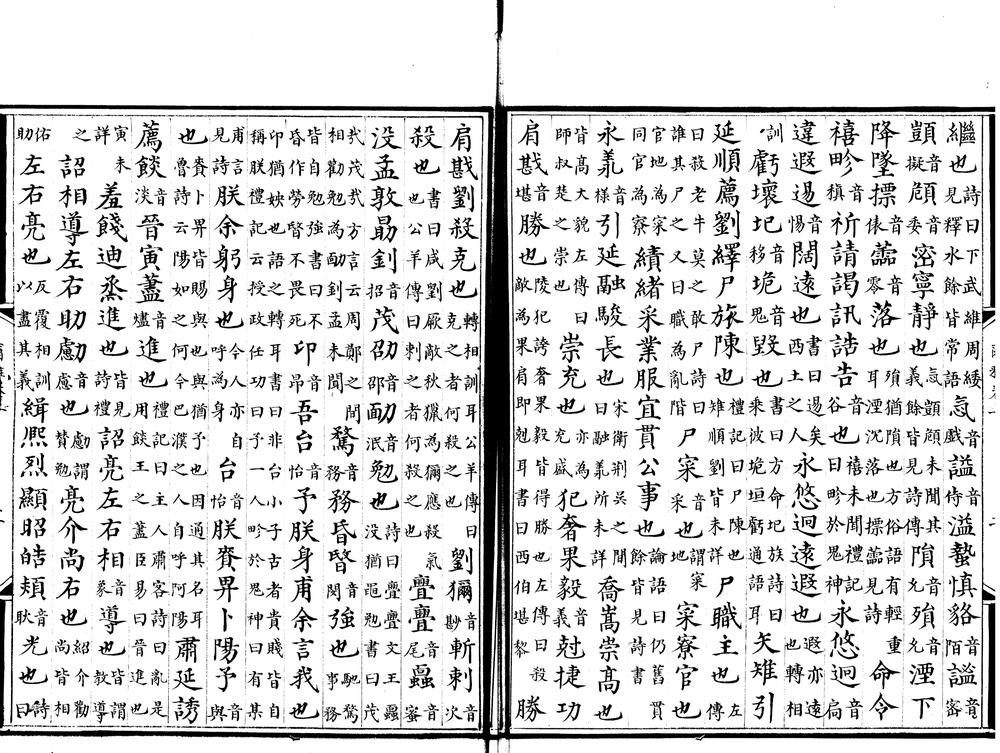 繼也詩曰下武維周綏見釋水餘皆常語忥音戲謚音侍溢蟄慎貉音陌謐音密
顗音擬頠音委密寧靜也忥顗頠未聞其義餘皆見詩傳隕音尹殞音允湮下
降墜摽音俵蘦音零落也猶隕也方俗語有輕重耳湮沉落也摽蘦見詩命令
禧畛音稹祈請謁訊誥告也音谷禧未聞禮記曰畛於鬼神永悠迥音扃
違遐逷音惕闊遠也書曰逷矣西土之人永悠迥遠遐也遐亦遠也轉相
訓虧壞圮音移垝音鬼毀也書曰方命圮族詩曰乘彼垝垣虧通語耳矢雉引
延順薦劉繹尸旅陳也禮記曰尸陳也雉順劉皆未詳尸職主也左傳
曰殺老牛莫之敢尸詩曰誰其尸之又曰職為亂階尸寀音采也謂寀地寀寮官也
官地為寀同官為寮績緒采業服宜貫公事也論語曰仍舊貫餘皆見詩書
永羕音樣引延融駿長也宋衛荊吳之間曰融羕所未詳喬嵩崇高也
皆高大貌左傳曰師叔楚之崇也崇充也亦為充盛犯奢果毅剋捷功
肩戡音堪勝也陵犯誇奢果毅皆得勝也左傳曰殺敵為果肩即剋耳書曰西伯堪黎勝
肩戡劉殺克也轉相訓耳公羊傳曰克之者何殺之也劉獮音尟斬刺音次
殺也書曰咸劉厥敵秋獵為獮應殺氣也公羊傳曰刺之者何殺之也亹亹音尾蠠音蜜
没孟敦勗釗音招茂劭音邵勔音泯勉也詩曰亹亹文王蠠没猶黽勉書曰茂
哉茂哉方言云周鄭之間相勸勉為勔釗孟未聞騖音務務昏暋音閔強也馳騖事務
皆自勉強書曰不昏作勞暋不畏死卬音昂吾台音怡予朕身甫余言我也
卬猶姎也語之轉耳書曰非台小子古者貴賤皆自稱朕禮記云授政任功曰予一人畛於鬼神曰有某
甫言見詩朕余躬身也今人亦自呼為身台音怡朕賚畀卜陽予音與
也賚卜畀皆賜與也與猶予也因通其名耳魯詩云陽如之何今巴濮之人自呼阿陽肅延誘
薦餤音淡晉寅藎音燼進也禮記曰主人肅客詩曰亂是用餤王之藎臣易曰晉進也
寅未詳羞餞迪烝進也皆見詩禮詔亮左右相音象導也皆謂教導
之詔相導左右助勴音慮也勴謂贊勉亮介尚右也紹介勸尚皆相
佑助左右亮也反覆相訓以盡其義緝熙烈顯昭皓熲音耿光也詩曰